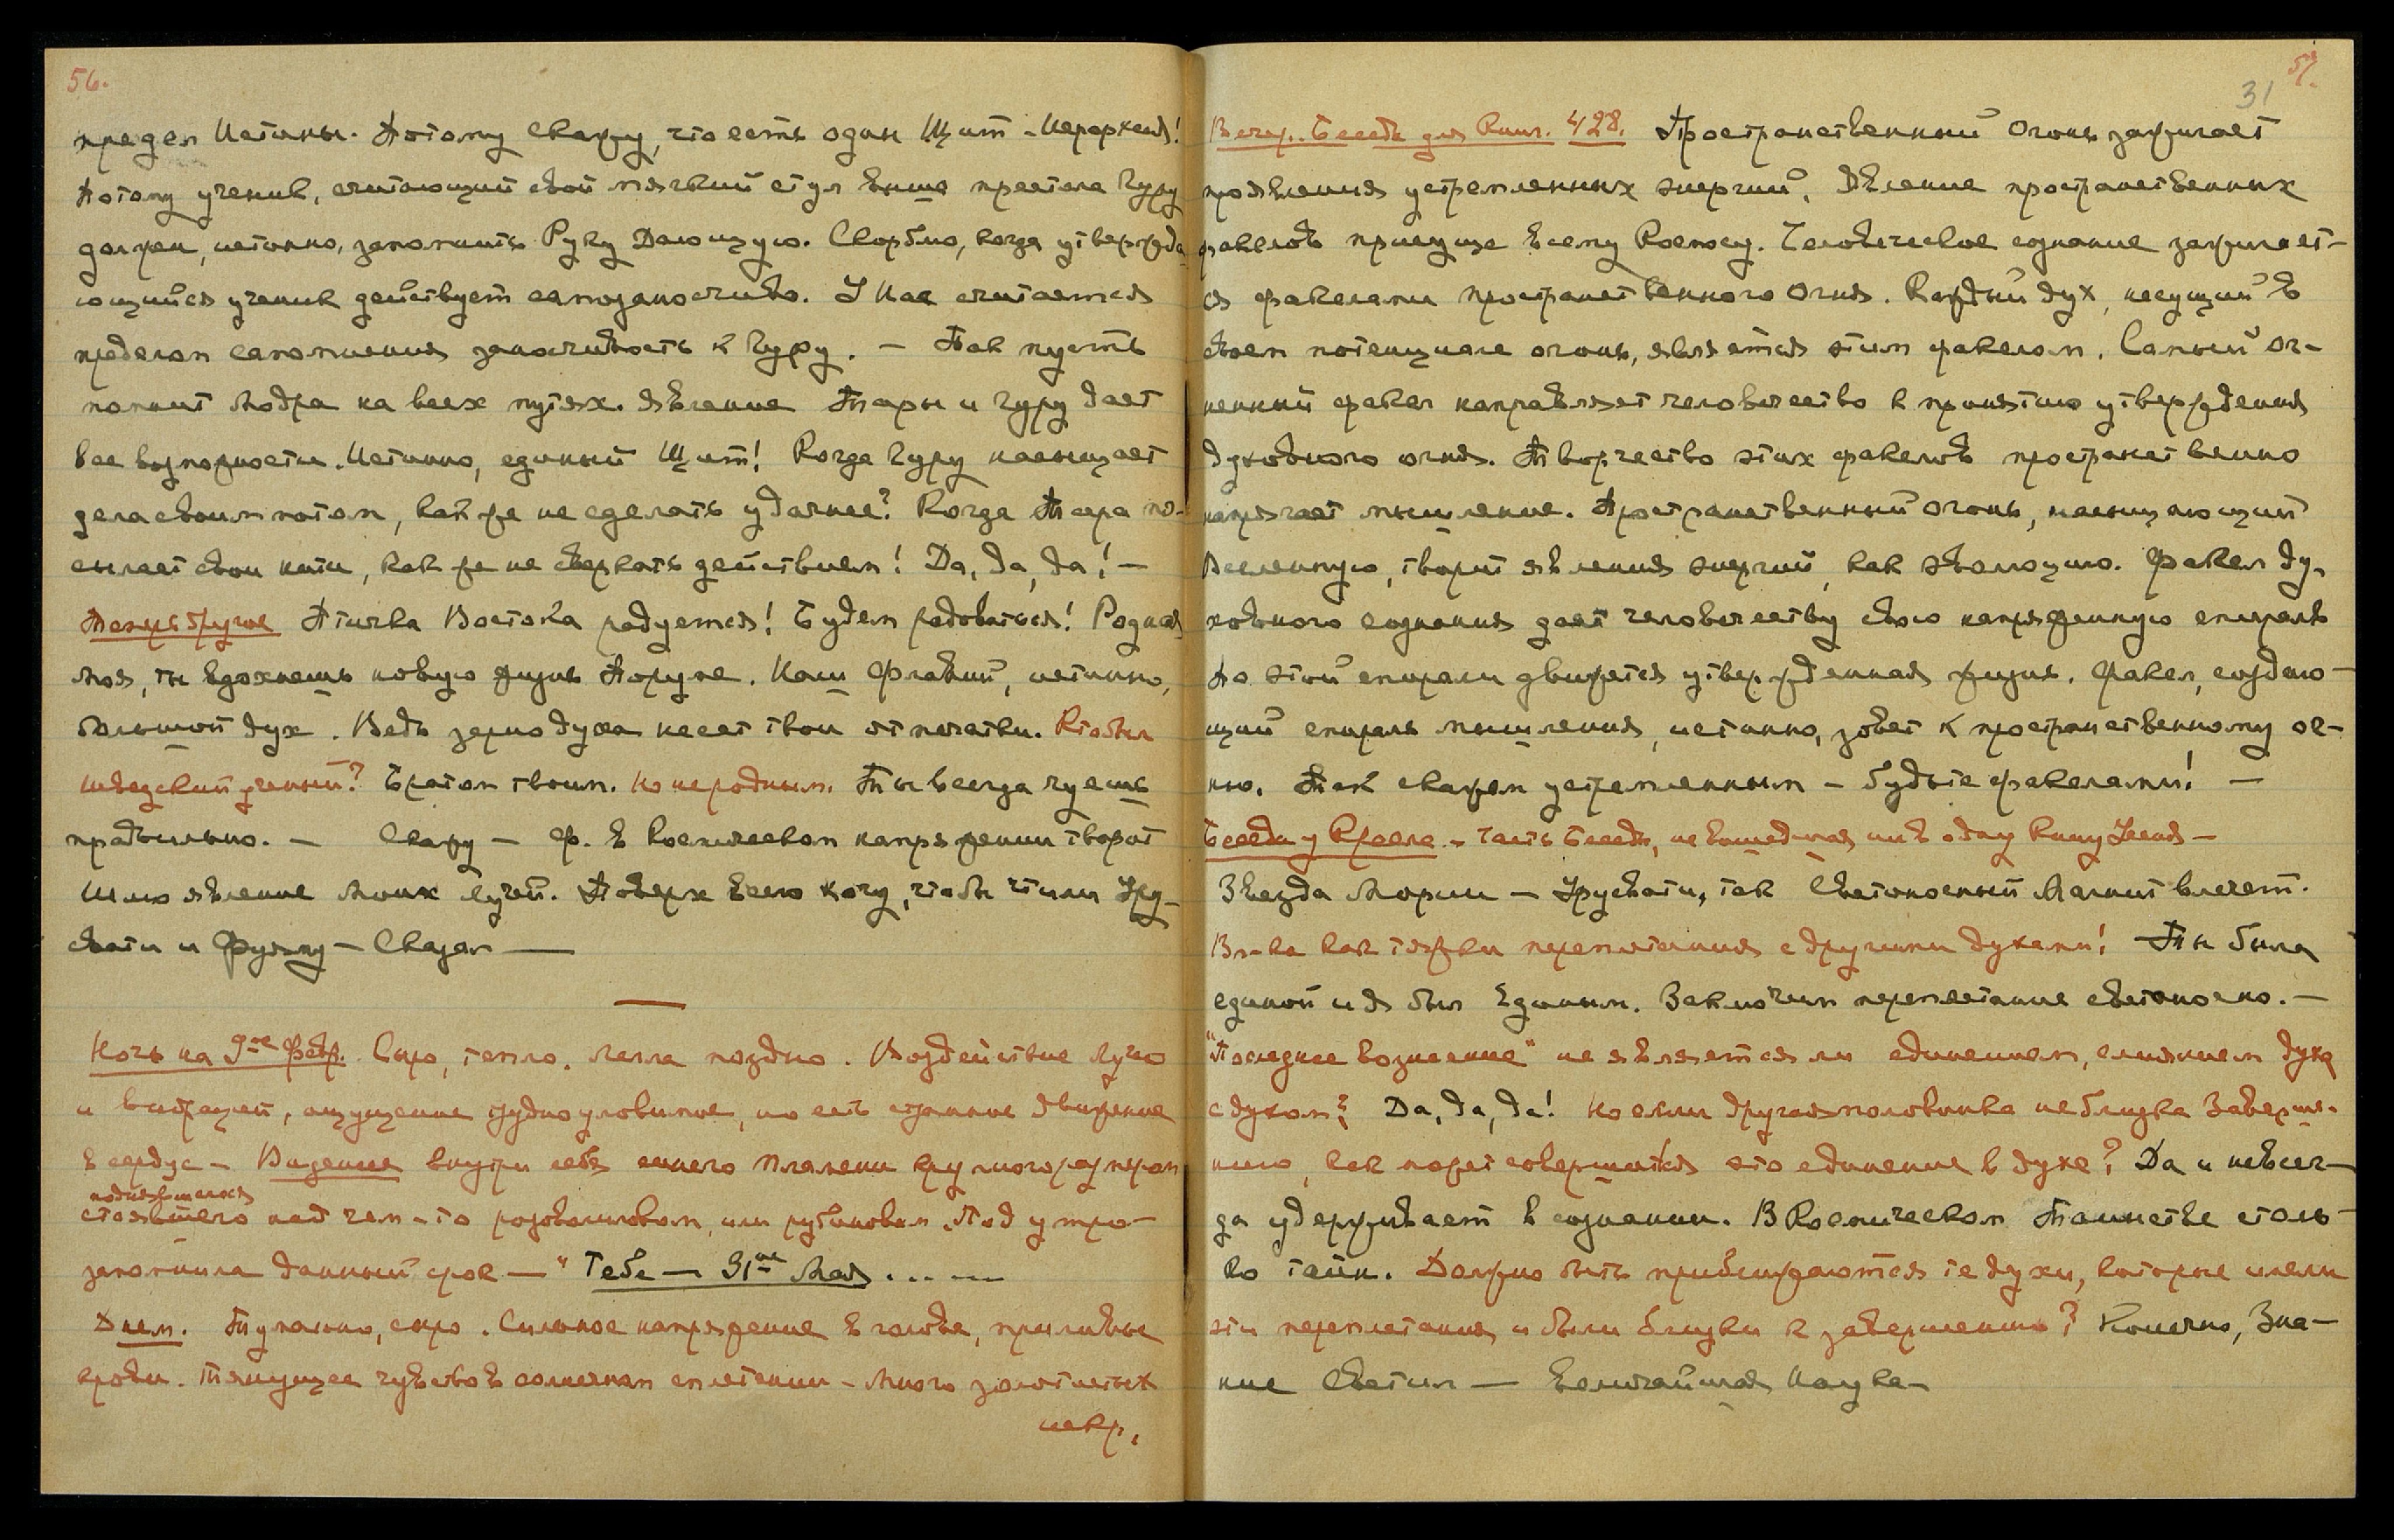 56.
предел Истины. Потому скажу, что есть один Щит - Иерархия!
Потому ученик, считающий свой мягкий стул выше престола Гуру
должен, истинно, запомнить Руку Дающую. Скорблю, когда утвержда-
ющийся ученик действует самозаносчиво. У Нас считается
пределом самомнения заносчивость к Гуру. — Так пусть
помнит Модра на всех путях. Явление Тары и Гуру дает
все возможности. Истинно, единый Щит! Когда Гуру насыщает
дела своим потом, как же не сделать удачнее? Когда Тара по-
сылает свои нити, как же не сверкать действием! Да, да, да! —
Теперь другое Птичка Востока радуется! Будем радоваться! Родная
Моя, ты вдохнешь новую жизнь Поруме. Наш Флавий, истинно,
большой дух. Ведь зерно духа несет твои отпечатки. Кто был
шведский ученый? Братом твоим. Но не родным. Ты всегда чуешь
правильно. — Скажу — Ф. в Космическом напряжении творит
Шлю явление Моих лучей. Поверх всего хочу, чтобы чтили Уру-
свати и Фуяму — Сказал —
Ночь на 9ое Февр. Сыро, тепло. Легла поздно. Воздействие Луча
и вибраций, ощущение трудно уловимое, но есть странное движение
в сердце — Видение внутри себя синего Пламени круглого размером
поднявшегося
стоявшего над чем-то розоволиловым, или рубиновым. Под утро —
запомнила данный срок — "Тебе — 31ое Мая . . . —
Днем. Туманно, сыро. Сильное напряжение в голове, приливы
крови. Тянущее чувство в солнечном сплетении — Много золотистых
искр.
57.
31
Вечер. Беседа для Книг. 428. Пространственный Огонь зажигает
проявления устремленных энергий. Явление пространственных
факелов присуще всему Космосу. Человеческое сознание зажигает-
ся факелами пространственного Огня. Каждый дух, несущий в
своем потенциале огонь, является этим факелом. Самый ог-
ненный факел направляет человечество к принятию утверждения
духовного огня. Творчество этих факелов пространственно
напрягает мышление. Пространственный огонь, насыщающий
Вселенную, творит явления энергий, как эволюцию. Факел ду-
ховного сознания дает человечеству свою напряженную спираль
По этой спирали движется утвержденная жизнь. Факел, создаю-
щий спираль мышления, истинно, зовет к пространственному ог-
ню. Так скажем устремленным — будьте факелами! —
Беседа у Кресла — Часть Беседы, не вошедшая ни в одну Книгу Учения —
Звезда Мории — Урусвати, так Светоносный Магнит влечет.
Вл-ка как тяжки переплетания с другими духами! Ты была
единой и Я был Единым. Заключим переплетание светоносно. —
"Последнее вознесение" не является ли единением, слиянием духа
с духом? Да, да, да! Но если другая половинка не близка Заверше-
нию, как может совершиться это единение в духе? Да и не всег-
да удерживает в сознании. В Космическом Таинстве столь-
ко тайн. Должно быть приближаются те духи, которые имели
эти переплетания и были близки к завершению? Конечно, Зна-
ние Светил — величайшая Наука —